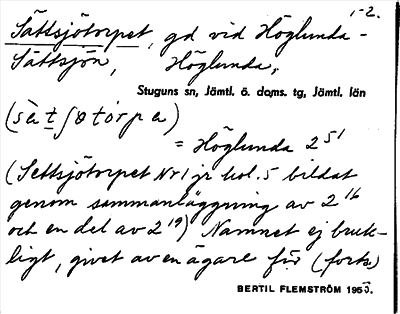 1-2.
Sättsjötorpet, gd vid Höglunda-
Sättsjön, Höglunda,
Stuguns sn, Jämtl. ö. doms. tg, Jämtl. län
(sà t ʃø tórpa)
= Höglunda 2 51
(Settsjötorpet Nr 1 jr kol. 5 bildat
genom sammanläggning av 2 16
och en del av 2 19) Namnet ej bruk-
ligt, givet av en ägare för (forts.)
BERTIL FLEMSTRÖM 1953.